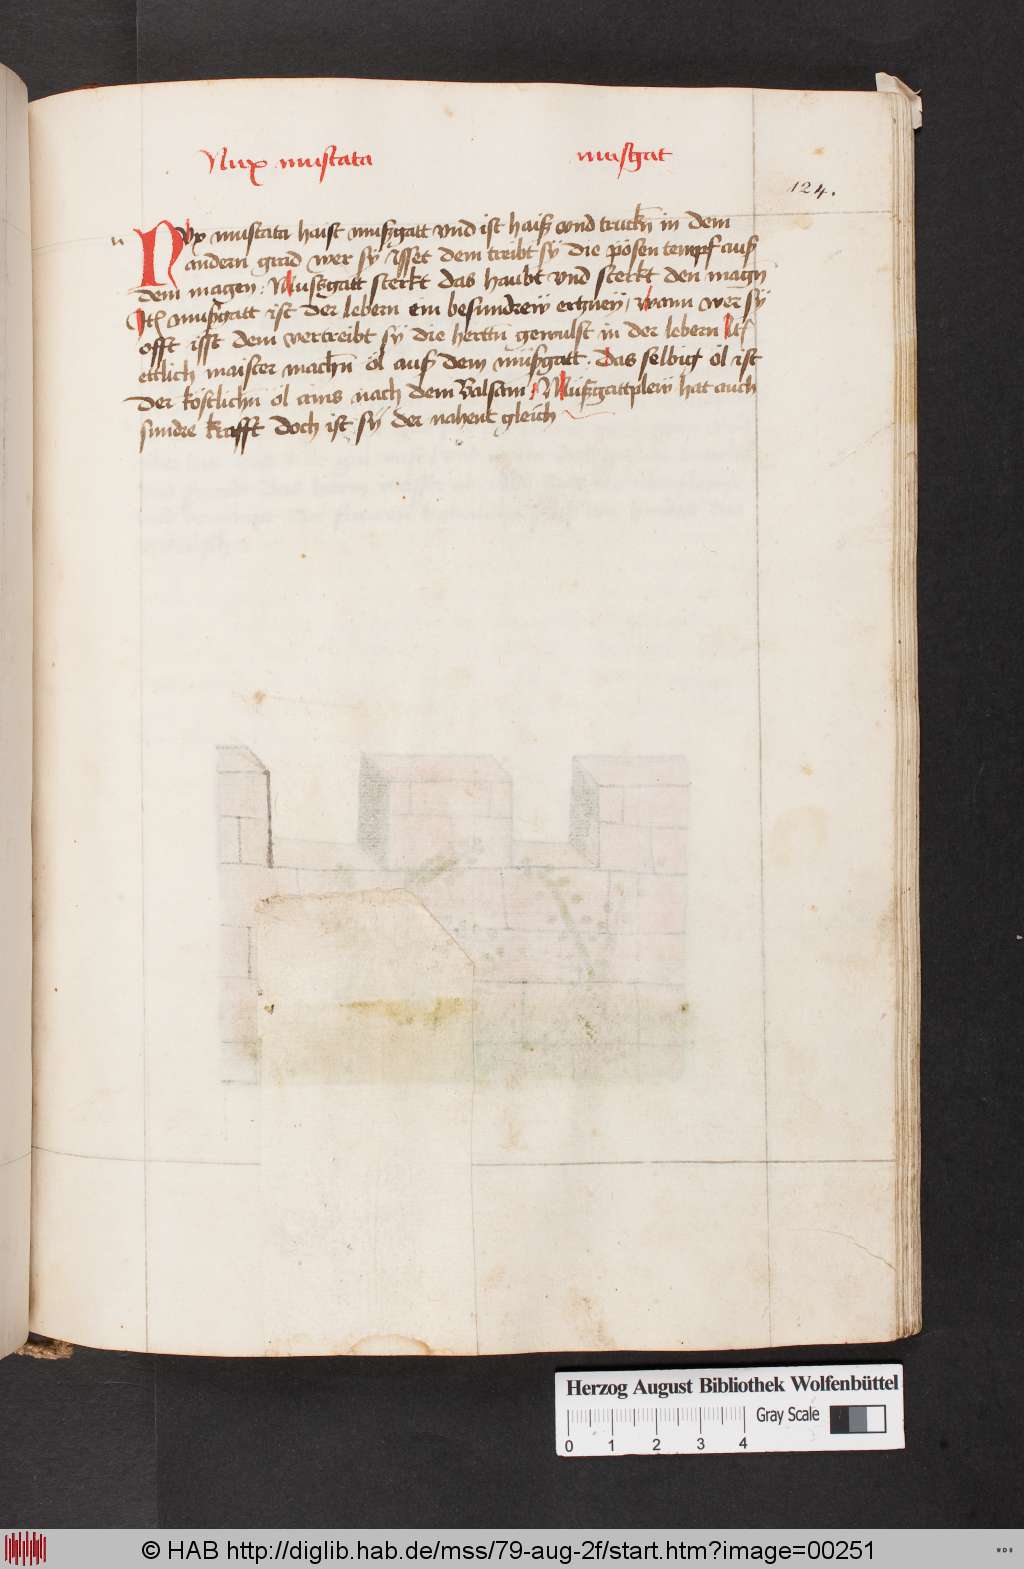 Nux muscata muscat
124.
n
Nux muscata haist mußgatt vnd ist haiß vnd truckñ in dem
andern grad wer sÿ isset dem treibt sÿ die pösen tempf auß
dem magen : Mußgatt sterkt das haubt vnd sterkt den magñ
Itē mußgatt ist der lebern ein besundrew ertzney / wann wer sÿ
offt isst dem vertreibt sÿ die herttñ gewulst in der lebern Itē
ettlich maister machñ öl auß dem müßgatt . Das selbig öl ist
der köstlichñ öl ains nach dem Balsam / Mußgattplew hat auch
sundre krafft doch ist sÿ der nahent gleich
Herzog August Bibliothek Wolfenbüttel
Gray Scale
0 1 2 3 4
© HAB http://diglib.hab.de/mss/79-aug-2f/start.htm?image=00251